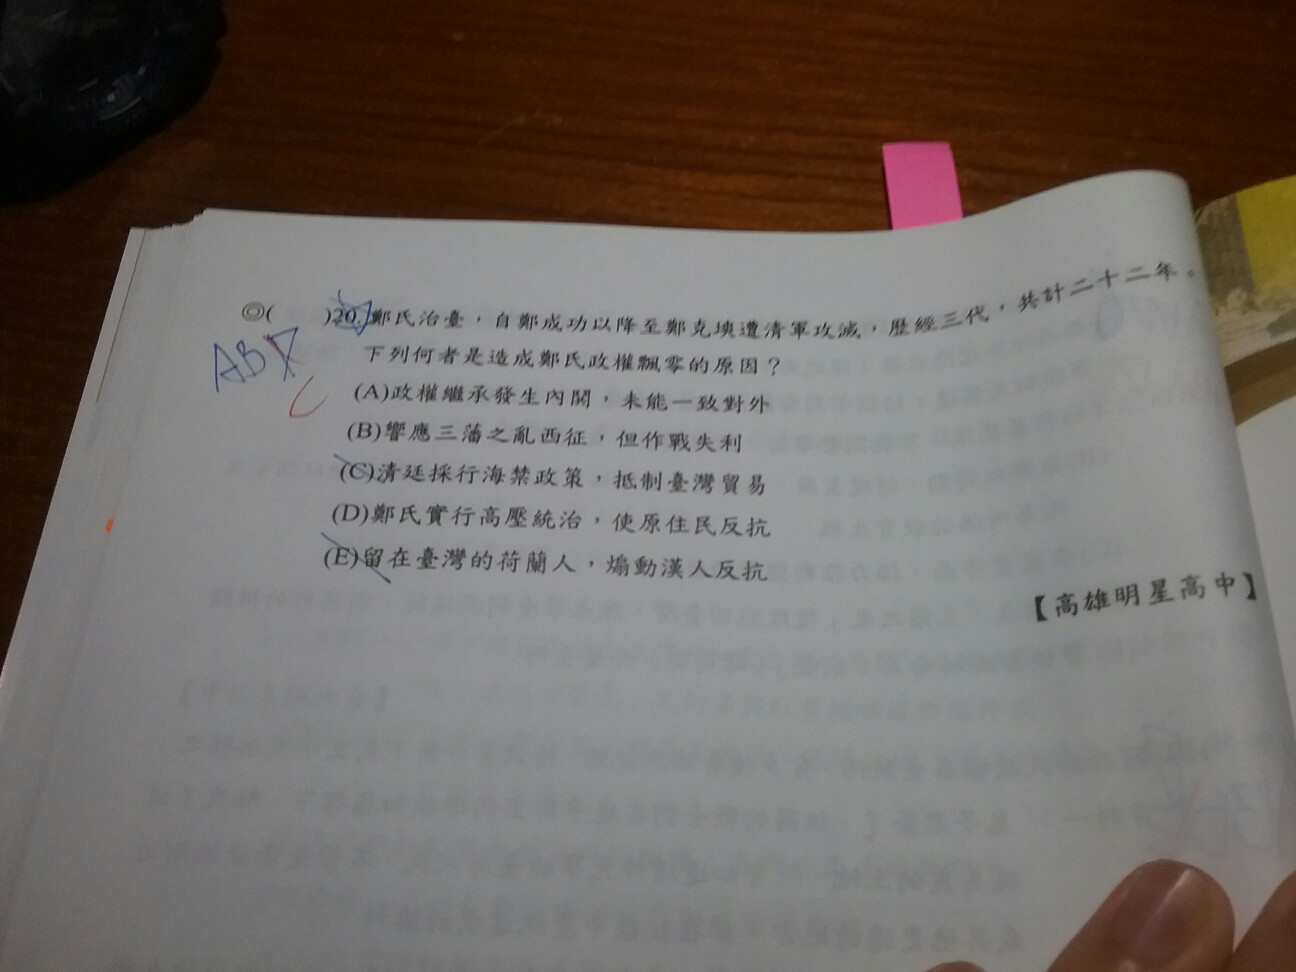 ◎(　　)20.鄭氏治臺，自鄭成功以降至鄭克塽遭清軍攻滅，歷經三代，共計二十二年。
下列何者是造成鄭氏政權飄零的原因？
AB
C
(A)政權繼承發生內鬨，未能一致對外
(B)響應三藩之亂西征，但作戰失利
(C)清廷採行海禁政策，抵制臺灣貿易
(D)鄭氏實行高壓統治，使原住民反抗
(E)留在臺灣的荷蘭人，煽動漢人反抗
【高雄明星高中】